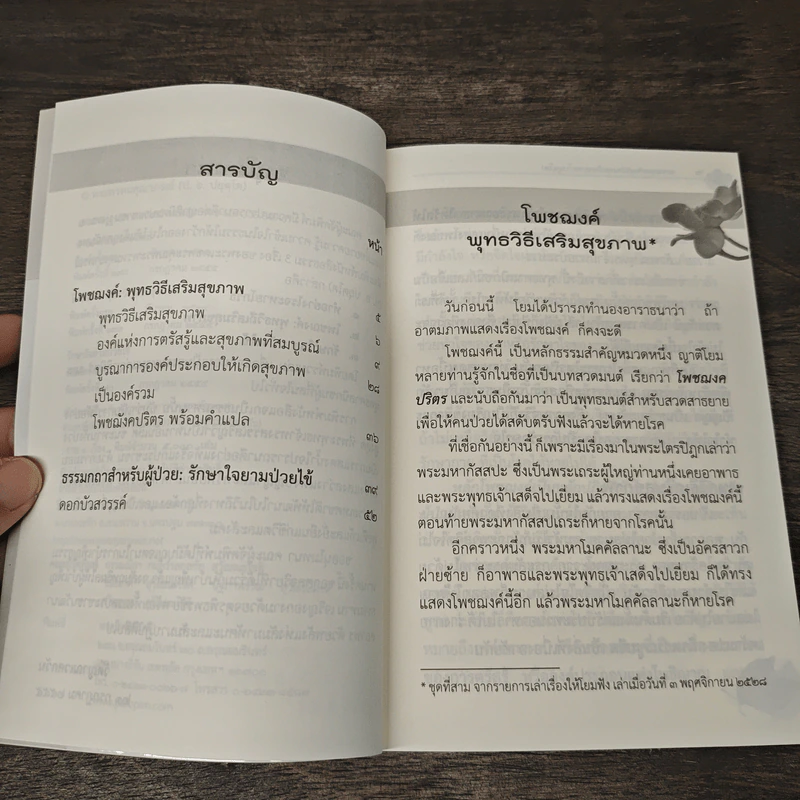 สารบัญ
หน้า
โพชฌงค์: พุทธวิธีเสริมสุขภาพ
พุทธวิธีเสริมสุขภาพ ๕
องค์แห่งการตรัสรู้และสุขภาพที่สมบูรณ์ ๖
บูรณาการองค์ประกอบให้เกิดสุขภาพ ๙
เป็นองค์รวม ๒๘
โพชฌังคปริตร พร้อมคำแปล ๓๖
ธรรมกถาสำหรับผู้ป่วย: รักษาใจยามป่วยไข้ ๓๙
ดอกบัวสวรรค์ ๕๒
โพชฌงค์
พุทธวิธีเสริมสุขภาพ*
วันก่อนนี้ โยมได้ปรารภทำนองอาราธนาว่า ถ้า
อาตมภาพแสดงเรื่องโพชฌงค์ ก็คงจะดี
โพชฌงค์นี้ เป็นหลักธรรมสำคัญหมวดหนึ่ง ญาติโยม
หลายท่านรู้จักในชื่อที่เป็นบทสวดมนต์ เรียกว่า โพชฌงค
ปริตร และนับถือกันมาว่า เป็นพุทธมนต์สำหรับสวดสาธยาย
เพื่อให้คนป่วยได้สดับตรับฟังแล้วจะได้หายโรค
ที่เชื่อกันอย่างนี้ ก็เพราะมีเรื่องมาในพระไตรปิฎกเล่าว่า
พระมหากัสสปะ ซึ่งเป็นพระเถระผู้ใหญ่ท่านหนึ่งเคยอาพาธ
และพระพุทธเจ้าเสด็จไปเยี่ยม แล้วทรงแสดงเรื่องโพชฌงค์นี้
ตอนท้ายพระมหากัสสปเถระก็หายจากโรคนั้น
อีกคราวหนึ่ง พระมหาโมคคัลลานะ ซึ่งเป็นอัครสาวก
ฝ่ายซ้าย ก็อาพาธและพระพุทธเจ้าเสด็จไปเยี่ยม ก็ได้ทรง
แสดงโพชฌงค์นี้อีก แล้วพระมหาโมคคัลลานะก็หายโรค
* ชุดที่สาม จากรายการเล่าเรื่องให้โยมฟัง เล่าเมื่อวันที่ ๓ พฤศจิกายน ๒๕๒๘